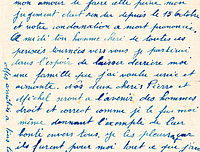 mon amour de faire cette peine. mon
jugement était rendu depuis le 15 octobre
et notre condamnation à mort prononcée.
A midi ton homme chéri de toutes ses
pensées tournées vers vous je partirai
dans l'espoir de laisser derrière moi
une famille que j'ai voulue unie et
aimante. Nos deux chéris Pierre et
Michel seront à l'avenir des hommes
droit et sincère comme je le fus moi
même donnant l'exemple de leur
bonté envers tous, je les pleure car
ils furent pour moi tout ce que j'